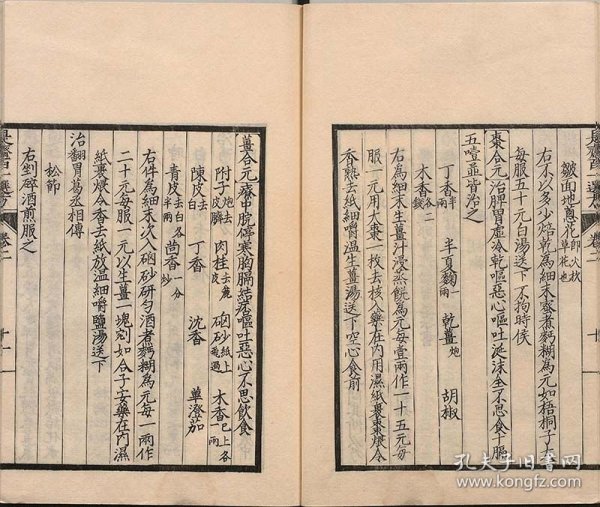 皺面地蔥花即火杴草花也
右不以多少焙乾為細末蜜煮麪糊為元如梧桐子大
每服五十元白湯送下不拘時侯
棗合元治脾胃虛冷乾嘔惡心嘔吐涎沫全不思食十膈
五噎並皆治之
丁香半兩 半夏麴一兩 乾薑炮 胡椒
木香各二錢
右為細末生薑汁浸蒸餅為元每壹兩作一十五元每
服一元用大棗一枚去核入藥在內用濕紙裹棗煨令
香熟去紙細嚼溫生薑湯送下空心食前
薑合元療中脘停寒胸膈結痞嘔吐惡心不思飲食
附子炮去皮臍 肉桂去麄皮 硇砂紙上飛過 木香已上各一兩
陳皮去白 丁香 沈香 蓽澄茄
青皮去白各半兩 茴香一分炒
右件為細末次入硇砂研勻酒煮麪糊為元每一兩作
二十元每服一元以生薑一塊剜如合子安藥在內濕
紙裹煨令香去紙放溫細嚼鹽湯送下
治翻胃葛丞相傳
松節
右剉碎酒煎服之
是齋百一選方 卷二 十
是齋百一選方 卷二 十一
孔夫子旧书网
www.kongfz.com